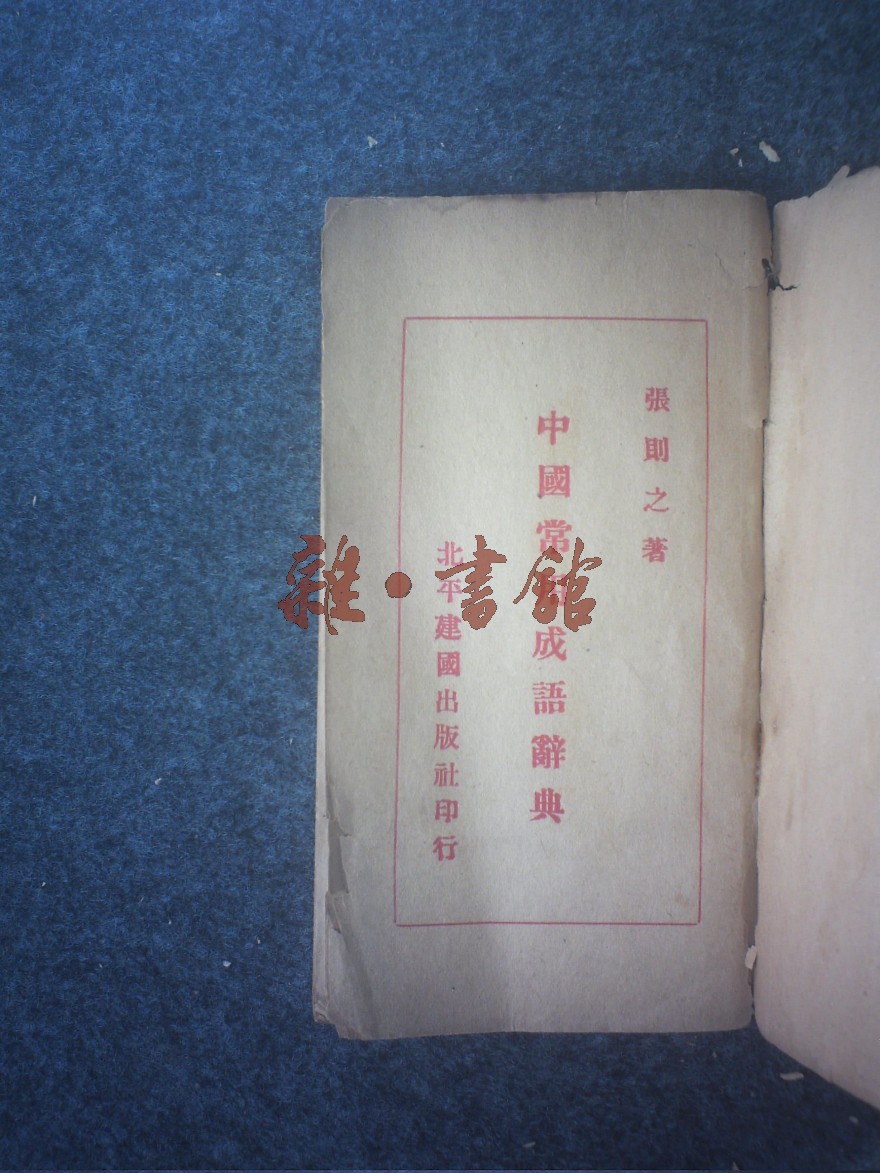 張則之著
中國常成語辭典
北平建國出版社印行
雜·書館